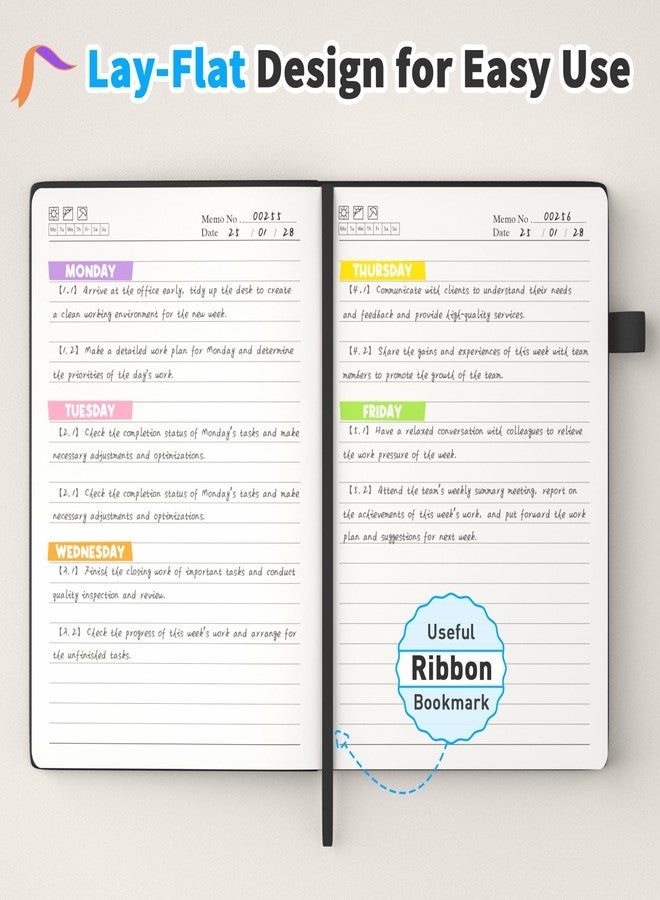 Lay-Flat Design for Easy Use
Memo No. 00255
Mo Tu We Th Fr Sa Su
Date 25 / 01 / 28
MONDAY
[1.1] Arrive at the office early, tidy up the desk to create
a clean working environment for the new week.
[1.2] Make a detailed work plan for Monday and determine
the priorities of the day's work.
TUESDAY
[2.1] Check the completion status of Monday's tasks and make
necessary adjustments and optimizations.
[2.1] Check the completion status of Monday's tasks and make
necessary adjustments and optimizations.
WEDNESDAY
[3.1] Finish the closing work of important tasks and conduct
quality inspection and review.
[3.2] Check the progress of this week's work and arrange for
the unfinished tasks.
Memo No. 00256
Mo Tu We Th Fr Sa Su
Date 25 / 01 / 28
THURSDAY
[4.1] Communicate with clients to understand their needs
and feedback and provide high-quality services.
[4.2] Share the gains and experiences of this week with team
members to promote the growth of the team.
FRIDAY
[5.1] Have a relaxed conversation with colleagues to relieve
the work pressure of the week.
[5.2] Attend the team's weekly summary meeting, report on
the achievements of this week's work, and put forward the work
plan and suggestions for next week.
Useful
Ribbon
Bookmark